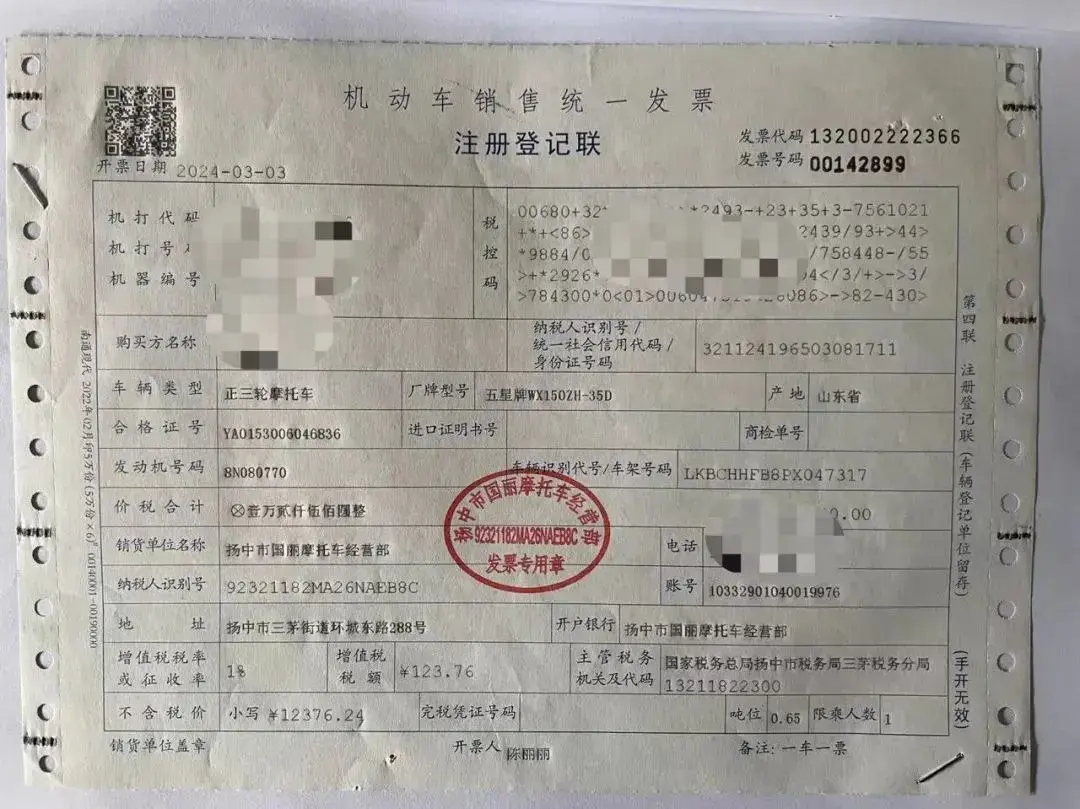 机动车销售统一发票
注册登记联
发票代码 132002222366
发票号码 00142899
开票日期 2024-03-03
机打代码
机打号
机器编号
税控码
00680+32* *2493-+23+35+3-7561021
+*+<86> 2439/93+>44>
*9884/0 /758448-/55
>+*2926* 04</3/+>->3/
>784300*0<01> 6086>->82-430>
购买方名称
纳税人识别号/
统一社会信用代码/
身份证号码
321124196503081711
车辆类型 正三轮摩托车 厂牌型号 五星牌WX150ZH-35D 产地 山东省
合格证号 YA0153006046836 进口证明书号 商检单号
发动机号码 8N080770 车辆识别代号/车架号码 LKBCHHFB8PX047317
价税合计 ⊗壹万贰仟伍佰圆整 0.00
销货单位名称 扬中市国丽摩托车经营部 电话
纳税人识别号 92321182MA26NAEB8C 账号 10332901040019976
地址 扬中市三茅街道环城东路288号 开户银行 扬中市国丽摩托车经营部
增值税税率
或征收率 1%
增值税
税额 ¥123.76
主管税务
机关及代码
国家税务总局扬中市税务局三茅税务分局
13211822300
不含税价 小写 ¥12376.24 完税凭证号码 吨位 0.65 限乘人数 1
销货单位盖章 开票人 陈丽丽 备注:一车一票
扬中市国丽摩托车经营部
92321182MA26NAEB8C
发票专用章
第四联 注册登记联(车辆登记单位留存)
(手开无效)
南通现代 2022年02月印5万份(5万份×6) 00140001-00190000